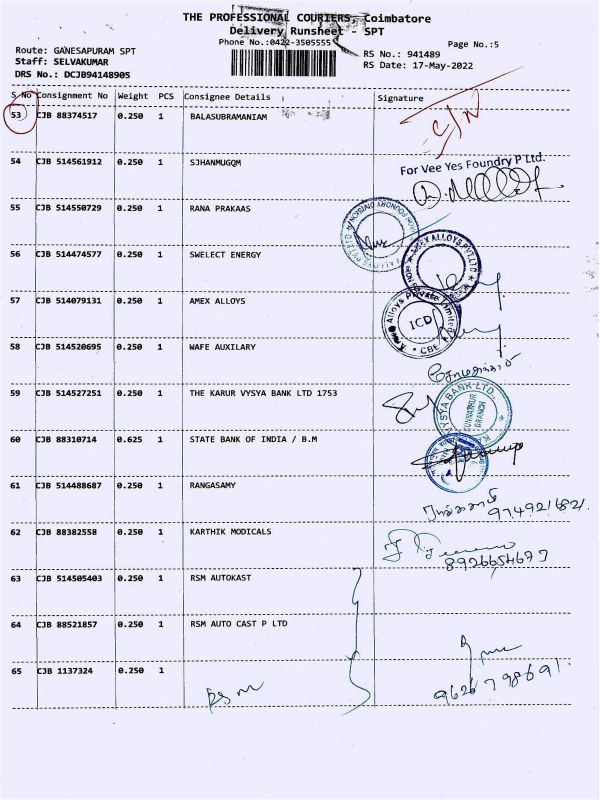 THE PROFESSIONAL COURIERS, Coimbatore
Delivery Runsheet - SPT
Phone No.:0422-3505555
Page No.:5
Route: GANESAPURAM SPT
Staff: SELVAKUMAR
DRS No.: DCJB94148905
RS No.: 941489
RS Date: 17-May-2022
S No Consignment No Weight PCS Consignee Details Signature
53 CJB 88374517 0.250 1 BALASUBRAMANIAM
C/N
54 CJB 514561912 0.250 1 SJHANMUGQM
For Vee Yes Foundry P Ltd.
55 CJB 514550729 0.250 1 RANA PRAKAAS
56 CJB 514474577 0.250 1 SWELECT ENERGY
AMEX ALLOYS PVT LTD
57 CJB 514079131 0.250 1 AMEX ALLOYS
Alloys Private Limited
ICD
CBE
58 CJB 514520695 0.250 1 WAFE AUXILARY
59 CJB 514527251 0.250 1 THE KARUR VYSYA BANK LTD 1753
VYSYA BANK LTD.
BRANCH
60 CJB 88310714 0.625 1 STATE BANK OF INDIA / B.M
61 CJB 514488687 0.250 1 RANGASAMY
9749216821.
62 CJB 88382558 0.250 1 KARTHIK MODICALS
63 CJB 514505403 0.250 1 RSM AUTOKAST
64 CJB 88521857 0.250 1 RSM AUTO CAST P LTD
65 CJB 1137324 0.250 1
RSM
9626798691.